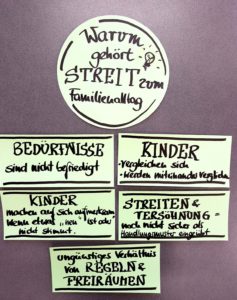 Warum
gehört
STREIT zum
Familienalltag
BEDÜRFNISSE
sind nicht befriedigt
KINDER
- vergleichen sich
- werden miteinander verglichen
KINDER
machen auf sich aufmerksam,
wenn etwas "neu" ist oder
nicht stimmt.
STREITEN &
VERSÖHNUNG =
noch nicht sicher als
Handlungsmuster eingeübt
ungünstiges Verhältnis
von REGELN &
FREIRÄUMEN